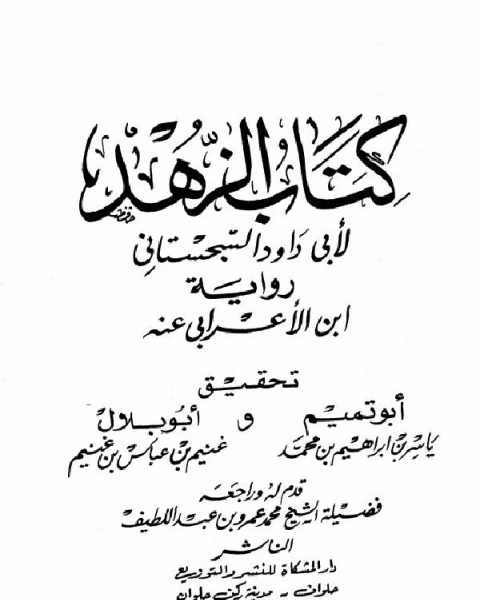 كِتَابُ الزُّهْدِ
لأبي داود السجستاني
رواية
ابن الأعرابي عنه
تحقيق
أبو تميم و أبو بلال
ياسر بن ابراهيم بن محمد غنيم بن عباس بن غنيم
قدم له وراجعه
فضيلة الشيخ محمد عمرو بن عبد اللطيف
الناشر
دار المشكاة للنشر والتوزيع
حلوان - مدينة ركن حلوان